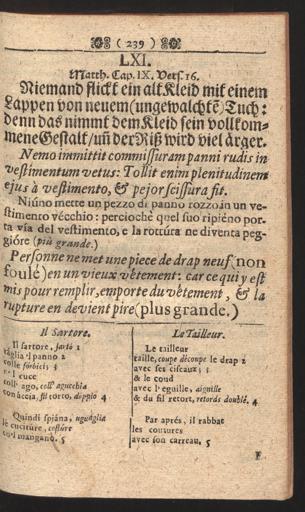 ( 239 )
LXI.
Matth. Cap. IX. Vers. 16.
Niemand flickt ein alt Kleid mit einem
Lappen von neuem (ungewalchtē) Tuch:
denn das nimmt dem Kleid sein vollkom-
mene Gestalt/ uñ der Riß wird viel ärger.
Nemo immittit commissuram panni rudis in
vestimentum vetus: Tollit enim plenitudinem
ejus à vestimento, & pejor scissura fit.
Niúno mette un pezzo di panno rozzo in un ve-
stimento vécchio: percioché quel suo ripiéno por-
ta via del vestimento, e la rottúra ne diventa peg-
gióre (più grande.)
Personne ne met une piece de drap neuf (non
foulé) en un vieux vêtement: car ce qui y est
mis pour remplir, emporte du vêtement, & la
rupture en devient pire (plus grande.)
Il Sartore.
Il sartore, sartó 1
táglia il panno 2
colle fórbicis; 3
e'l cuce
coll' ago, coll' agucchia
con áccia, fil torto, dóppio 4
Quindi spiána, uguáglia
le cuciture, costúre
col mangano. 5
Le Tailleur.
Le tailleur
taille, coupe découpe le drap 2
avec ses ciseaux; 3
& le coud
avec l'eguille, aiguille
& du fil retort, retords doublé. 4
Par aprés, il rabbat
les coutures
avec son carreau. 5